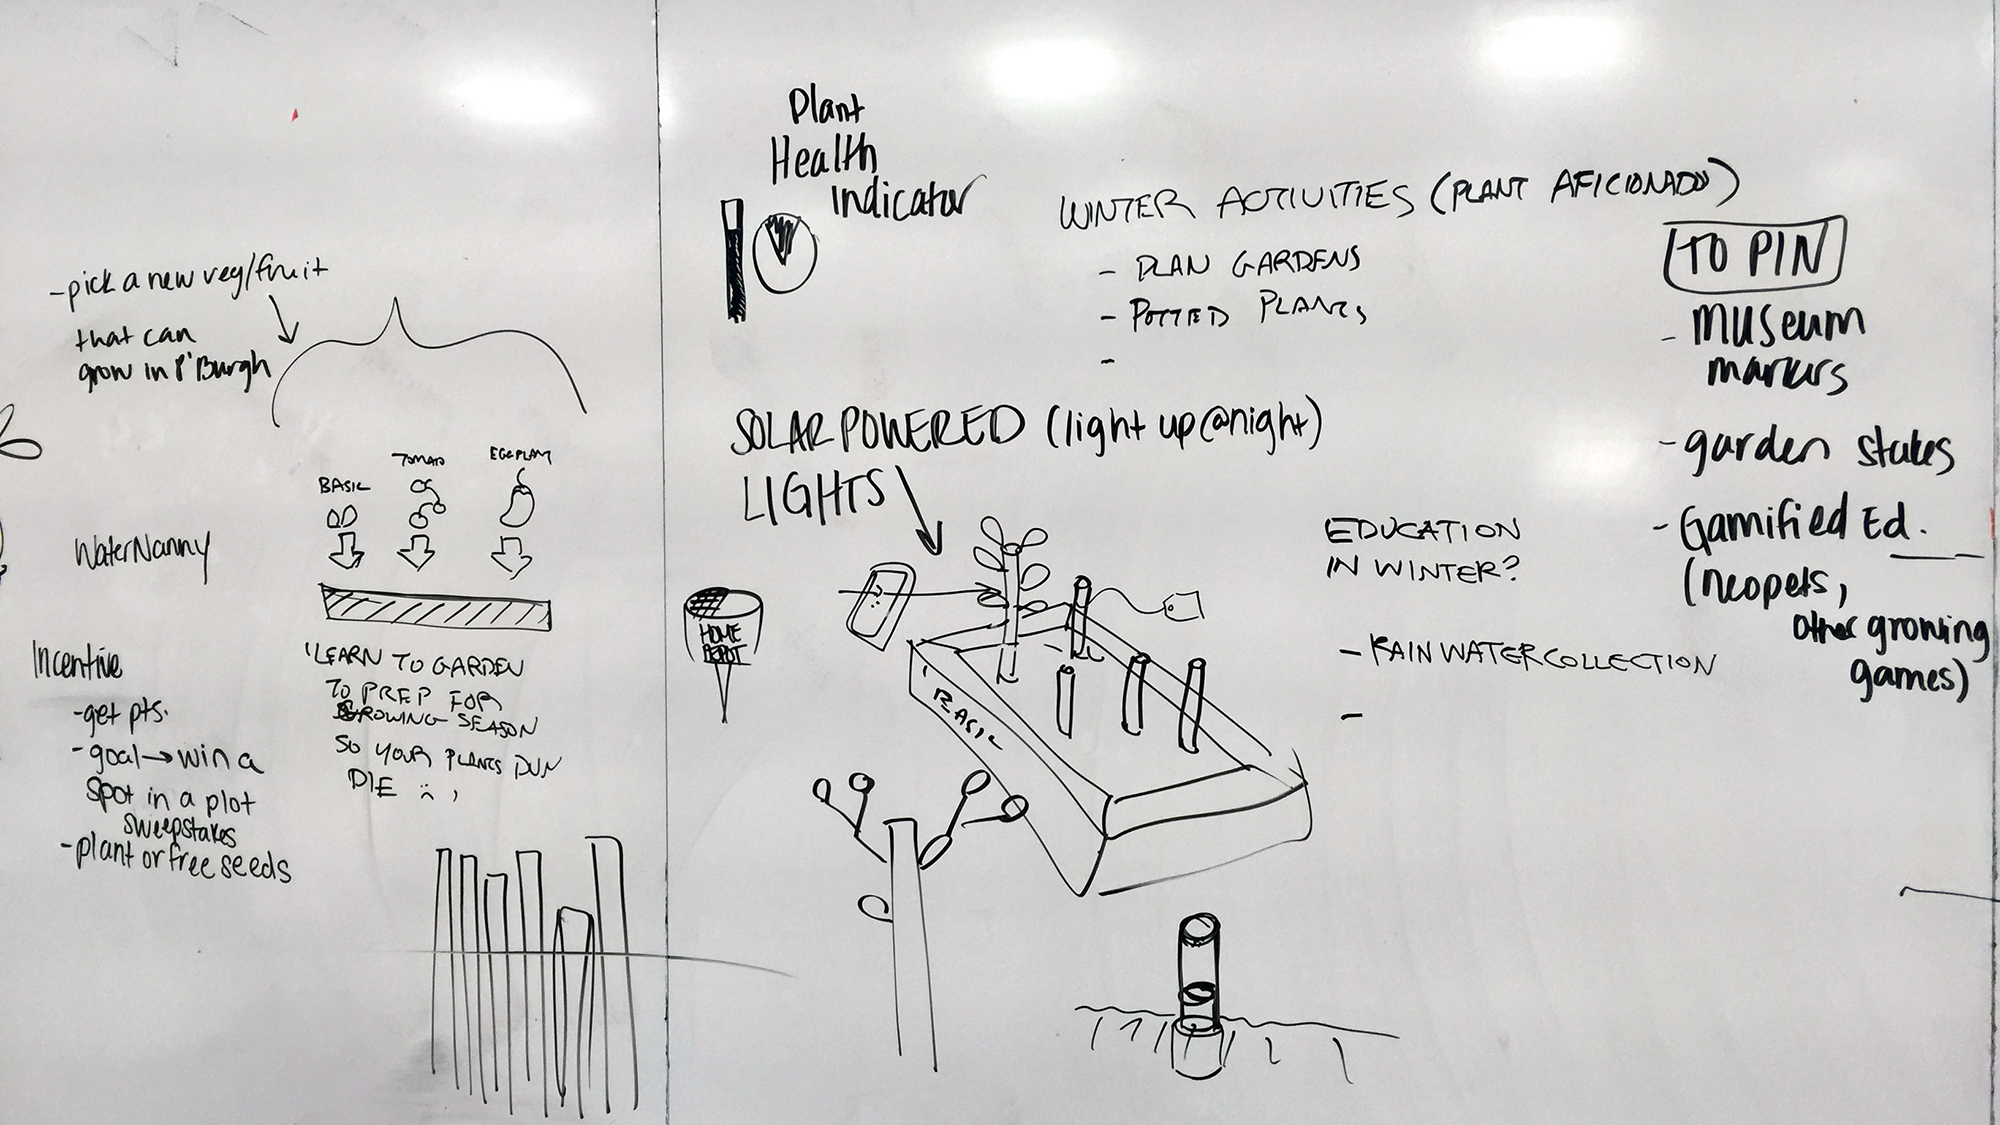 -pick a new veg/fruit
that can
grow in P'Burgh
BASIL
TOMATO
EGGPLANT
WaterNanny
Incentive
-get pts.
-goal→win a
spot in a plot
sweepstakes
-plant or free seeds
'LEARN TO GARDEN
TO PREP FOR
GROWING SEASON
SO YOUR PLANTS DUN
DIE :( ,
Plant
Health
Indicator
WINTER ACTIVITIES (PLANT AFICIONADO)
- PLAN GARDENS
- POTTED PLANTS
-
SOLAR POWERED (light up @ night)
LIGHTS
HOME
DEPOT
BASIL
EDUCATION
IN WINTER?
- RAIN WATER COLLECTION
-
TO PIN
- Museum
markers
- garden stakes
- Gamified Ed.
(neopets,
other growing
games)